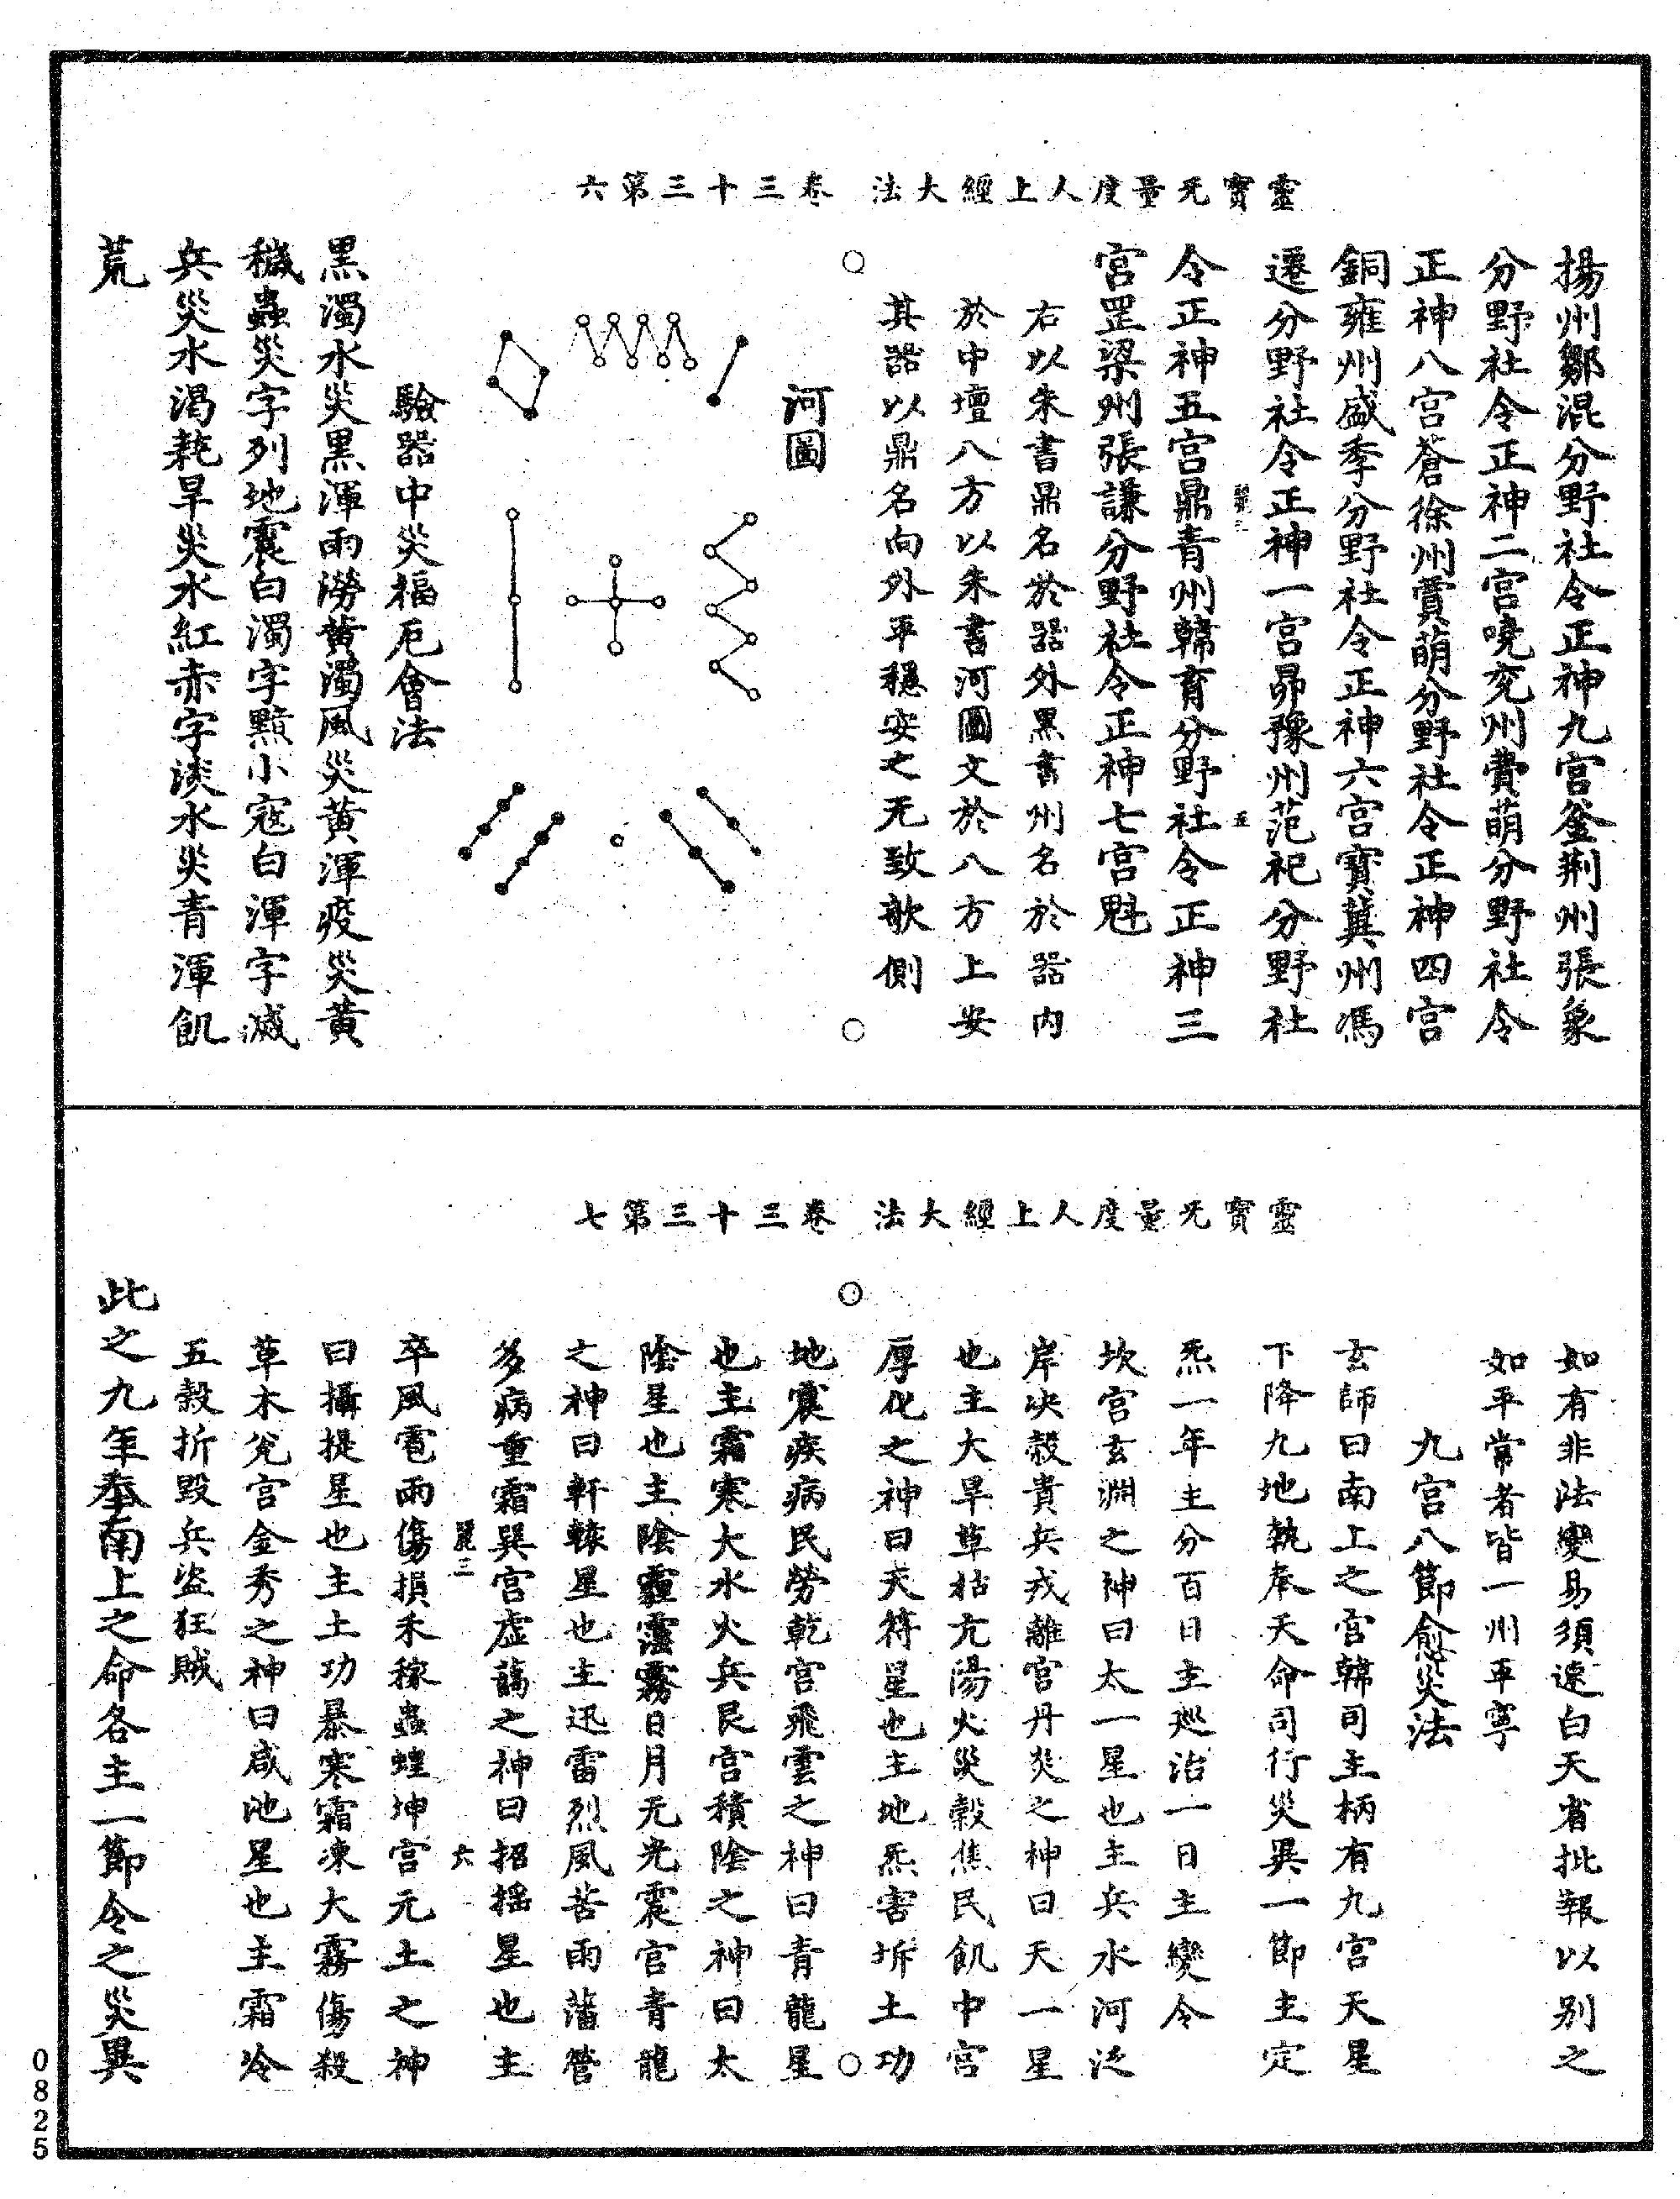 靈寶无量度人上經大法　卷三十三第六
揚州鄒混分野社令正神九宮釜荆州張象
分野社令正神二宮曉兖州費萌分野社令
正神八宮蒼徐州賁萌分野社令正神四宮
銅雍州盛季分野社令正神六宮寶冀州馮
遷分野社令正神一宮昴豫州范祀分野社
五
令正神五宮鼎青州韓育分野社令正神三
宮罡梁州張謙分野社令正神七宮魁
右以朱書鼎名於器外黑書州名於器内
於中壇八方以朱書河圖文於八方上安
其器以鼎名向外平穩安之无致欹側
河圖
驗器中災福厄會法
黑濁水災黑渾雨澇黃濁風災黃渾疫災黃
穢蟲災字列地震白濁字黰小寇白渾字滅
兵災水渴耗旱災水紅赤字淡水災青渾飢
荒
靈寶无量度人上經大法　卷三十三第七
如有非法變易須速白天省批報以别之
如平常者皆一州平寧
九宮八節愈災法
玄師曰南上之宮韓司主柄有九宮天星
下降九地執奉天命司行災異一節主定
炁一年主分百日主巡治一日主變令
坎宮玄淵之神曰太一星也主兵水河泛
岸决榖貴兵戎離宮丹炎之神曰天一星
也主大旱草枯亢陽火災榖焦民飢中宮
厚化之神曰天符星也主地炁害坼土功
地震疾病民勞乾宮飛雲之神曰青龍星
也主霜寒大水火兵艮宮積陰之神曰太
陰星也主陰霾靄霧日月无光震宮青龍
之神曰軒轅星也主迅雷烈風苦雨藩管
多病重霜巽宮虛蕩之神曰招摇星也主
麗三　六
卒風雹雨傷損禾稼蟲蝗坤宮元土之神
曰攝提星也主土功暴寒霜凍大霧傷殺
草木兊宮金秀之神曰咸池星也主霜冷
五榖折毀兵盜狂賊
此之九年奉南上之命各主一節令之災異
0825